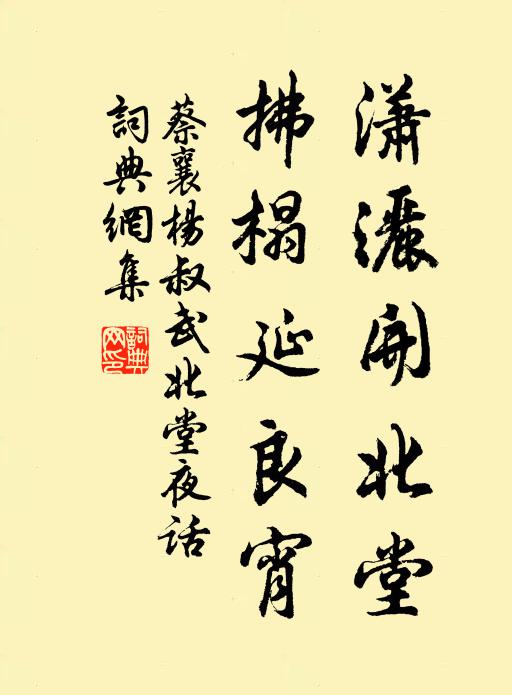 瀟灑開北堂
拂榻延良宵
蔡襄楊叔武北堂夜话
詞典網集
詞典网印